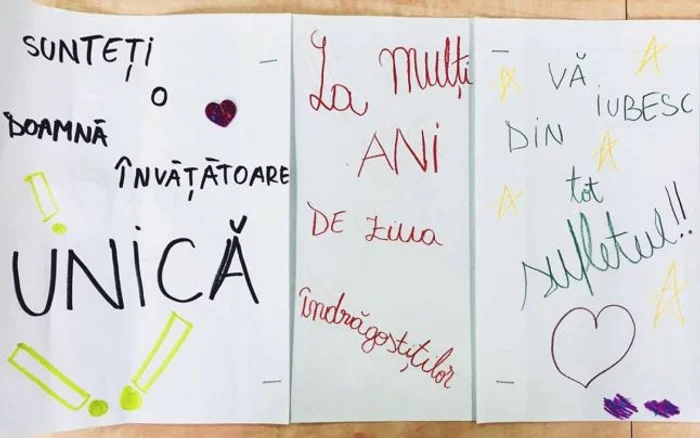 SUNTEȚI
O
DOAMNĂ
ÎNVĂȚĂTOARE
UNICĂ
La mulți
ANI
DE ziua
îndrăgostiților
VĂ
IUBESC
DIN
tot
sufletul!!